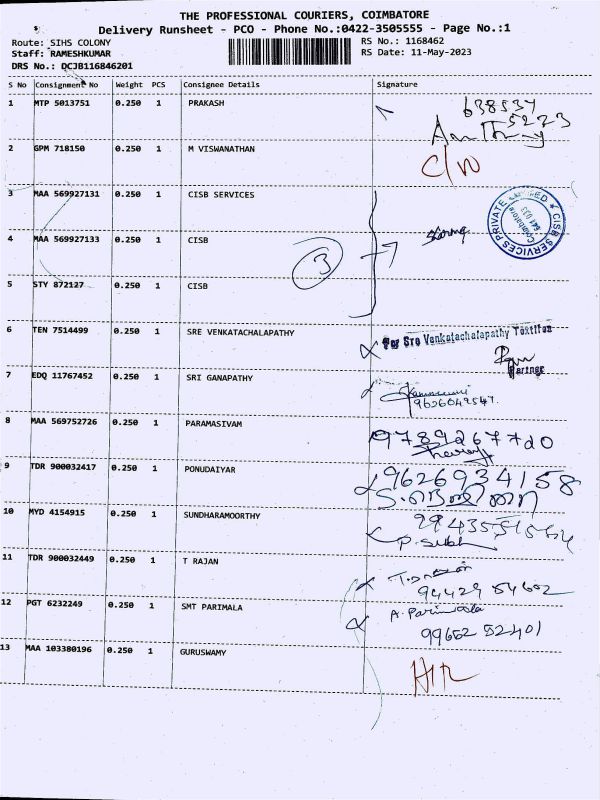 THE PROFESSIONAL COURIERS, COIMBATORE
Delivery Runsheet - PCO - Phone No.:0422-3505555 - Page No.:1
Route: SIHS COLONY
RS No.: 1168462
Staff: RAMESHKUMAR
RS Date: 11-May-2023
DRS No.: DCJB116846201
S No Consignment No Weight PCS Consignee Details Signature
1 MTP 5013751 0.250 1 PRAKASH
638537
5223
2 GPM 718150 0.250 1 M VISWANATHAN
3 MAA 569927131 0.250 1 CISB SERVICES
CISB SERVICES PRIVATE LIMITED ★
Coimbatore
641 033
4 MAA 569927133 0.250 1 CISB
3
5 STY 872127 0.250 1 CISB
6 TEN 7514499 0.250 1 SRE VENKATACHALAPATHY
For Sre Venkatachalapathy Textiles
Partner
7 EDQ 11767452 0.250 1 SRI GANAPATHY
9626049547
8 MAA 569752726 0.250 1 PARAMASIVAM
9 TDR 900032417 0.250 1 PONUDAIYAR
9626934158
10 MYD 4154915 0.250 1 SUNDHARAMOORTHY
11 TDR 900032449 0.250 1 T RAJAN
94429 54602
12 PGT 6232249 0.250 1 SMT PARIMALA
A. Parimala
99652 52401
13 MAA 103380196 0.250 1 GURUSWAMY